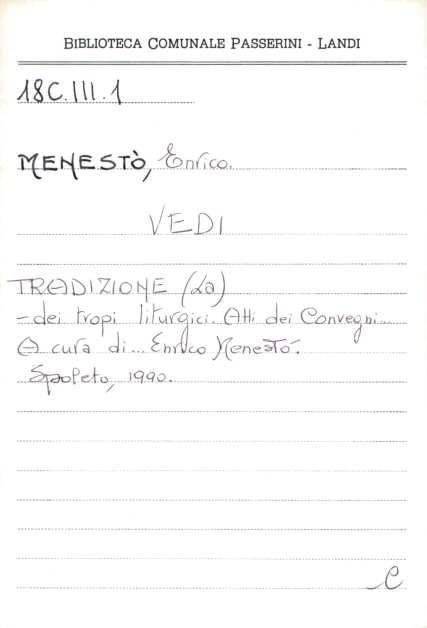 BIBLIOTECA COMUNALE PASSERINI - LANDI
18C.III.1
MENESTÒ, Enrico.
VEDI
TRADIZIONE (La)
- dei tropi liturgici. Atti dei Convegni...
A cura di... Enrico Menestó.
Spoleto, 1990.
C